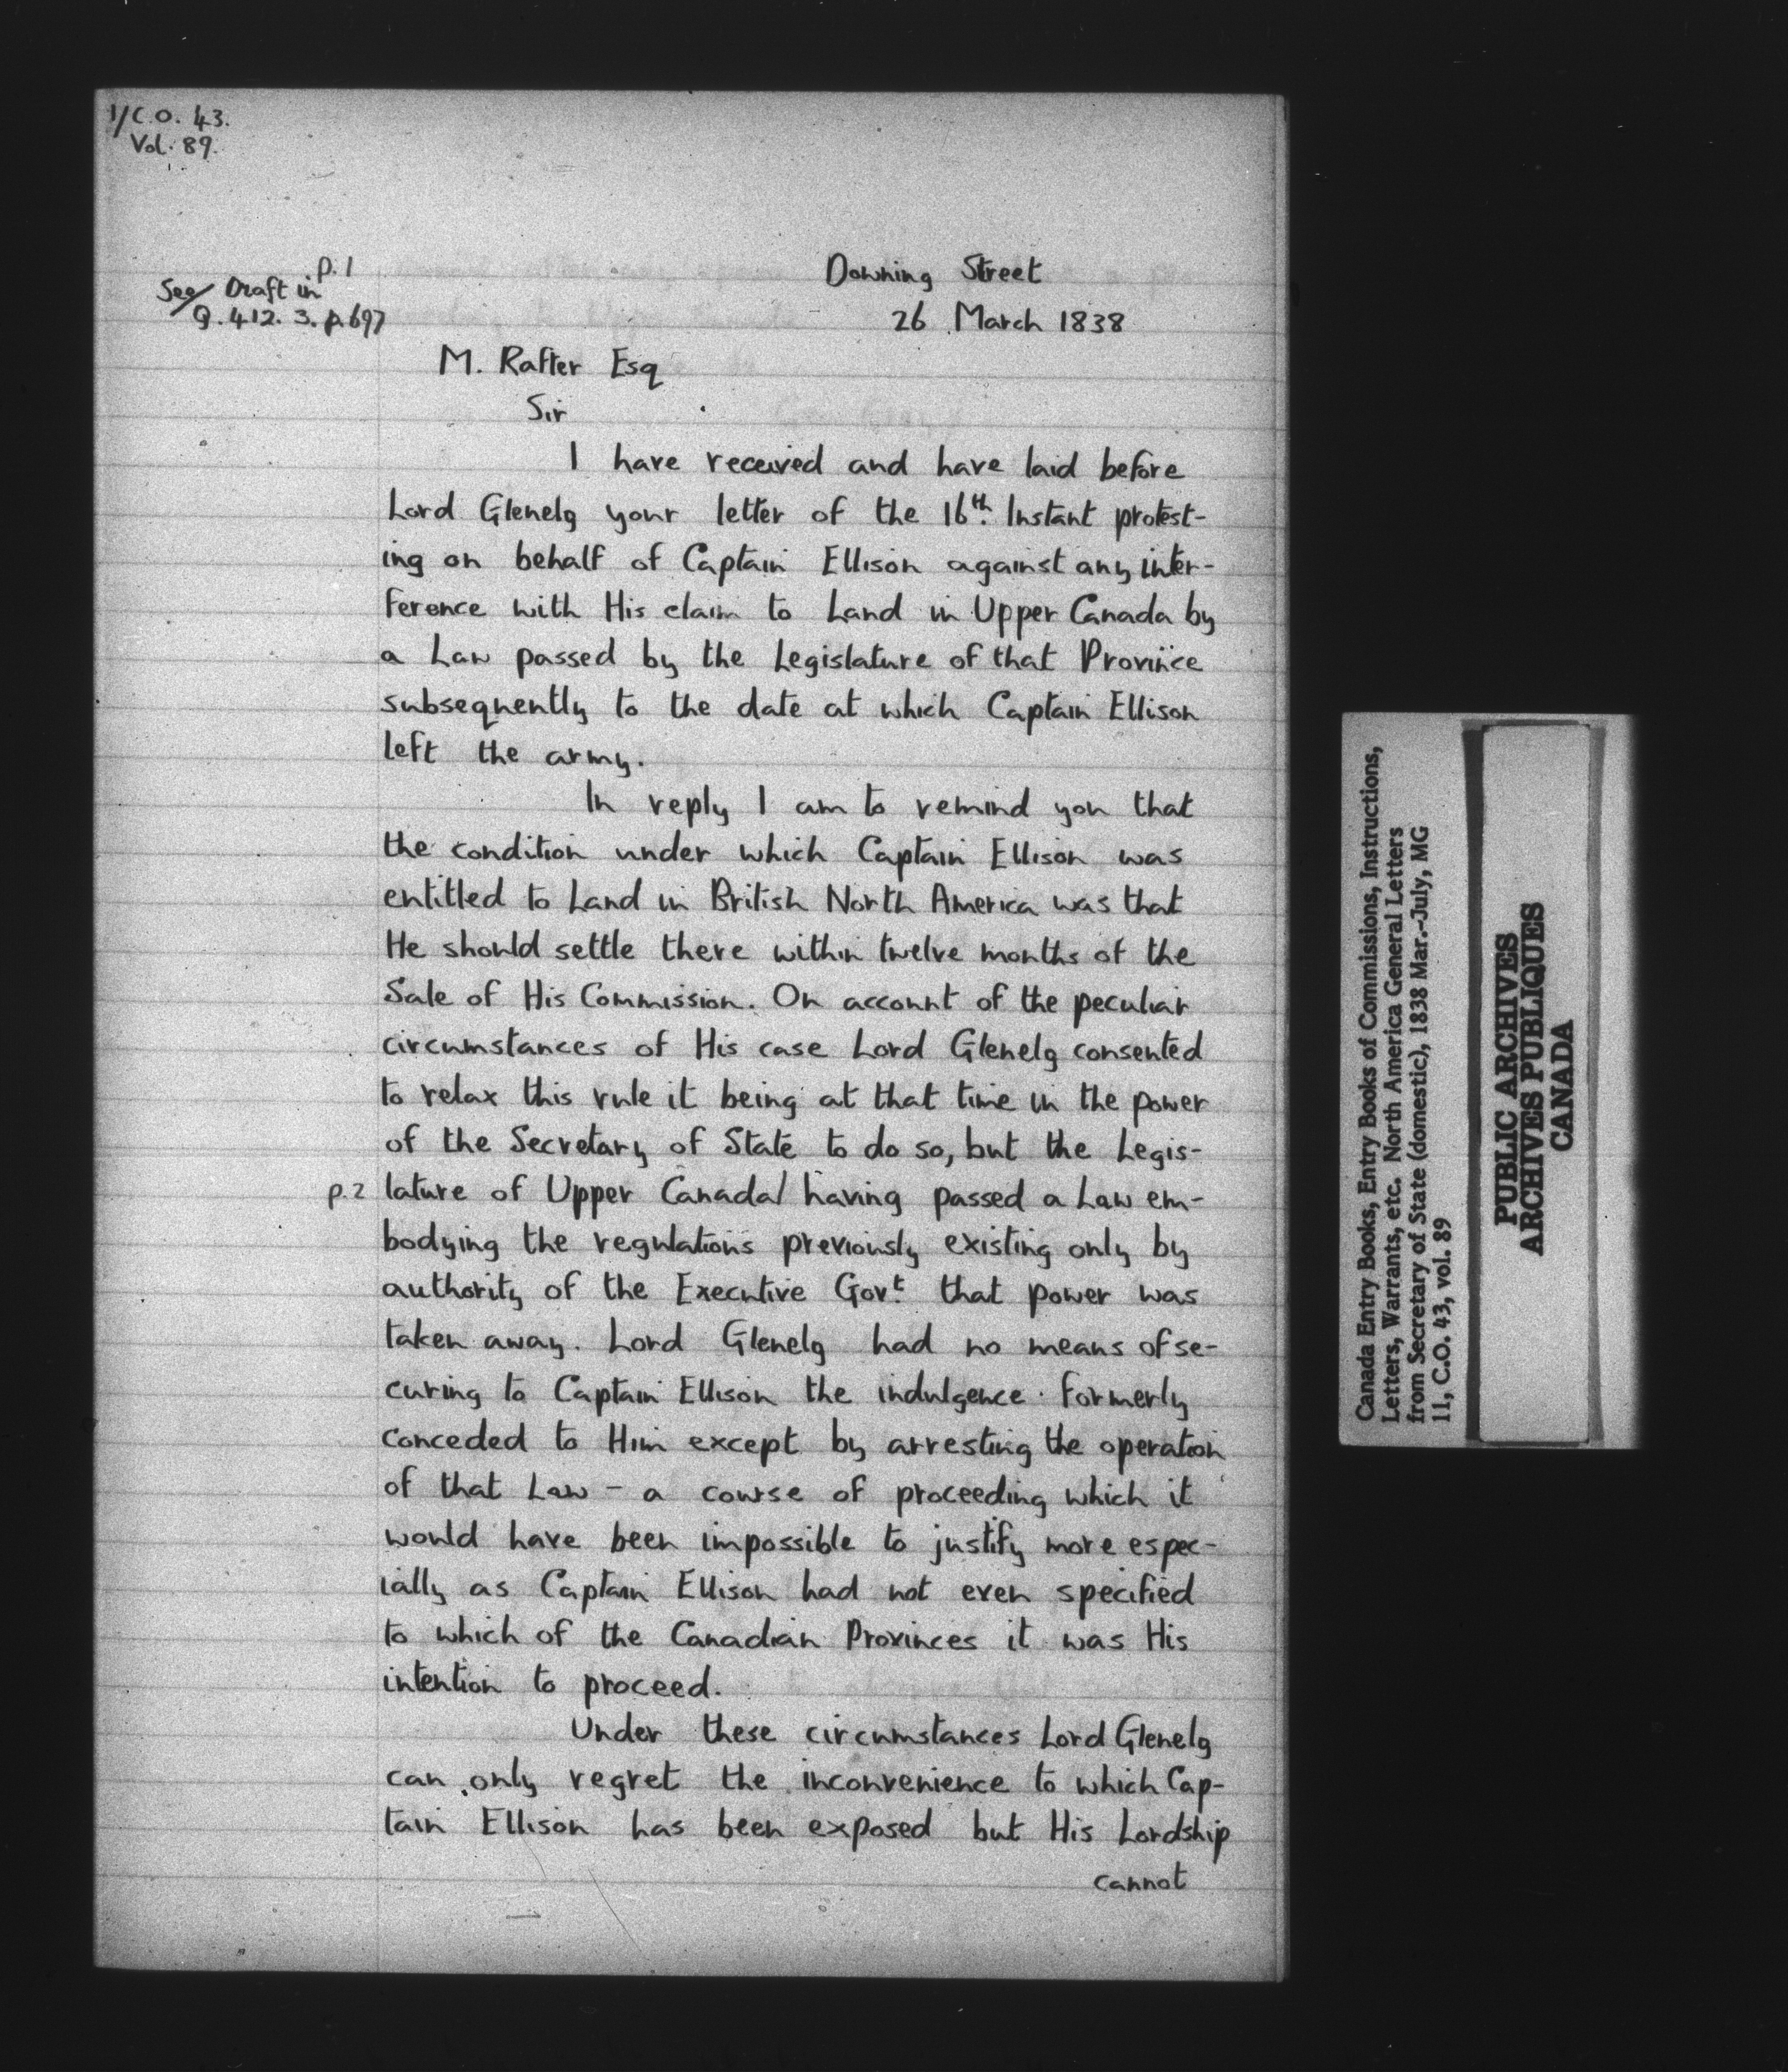 1/C.O. 43.
Vol. 89.
p. 1
See/ Draft in
Q. 412. 3. p. 697
Downing Street
26 March 1838
M. Rafter Esq
Sir
I have received and have laid before
Lord Glenelg your letter of the 16th. Instant protest-
ing on behalf of Captain Ellison against any inter-
ference with His claim to Land in Upper Canada by
a Law passed by the Legislature of that Province
subsequently to the date at which Captain Ellison
left the army.
In reply I am to remind you that
the condition under which Captain Ellison was
entitled to Land in British North America was that
He should settle there within twelve months of the
Sale of His Commission. On account of the peculiar
circumstances of His case Lord Glenelg consented
to relax this rule it being at that time in the power
of the Secretary of State to do so, but the Legis-
p. 2 lature of Upper Canada/ having passed a Law em-
bodying the regulations previously existing only by
authority of the Executive Govt. that power was
taken away. Lord Glenelg had no means of se-
curing to Captain Ellison the indulgence formerly
conceded to Him except by arresting the operation
of that Law - a course of proceeding which it
would have been impossible to justify more espec-
ially as Captain Ellison had not even specified
to which of the Canadian Provinces it was His
intention to proceed.
Under these circumstances Lord Glenelg
can only regret the inconvenience to which Cap-
tain Ellison has been exposed but His Lordship
cannot
Canada Entry Books, Entry Books of Commissions, Instructions,
Letters, Warrants, etc. North America General Letters
from Secretary of State (domestic), 1838 Mar.-July, MG
11, C.O. 43, vol. 89
PUBLIC ARCHIVES
ARCHIVES PUBLIQUES
CANADA